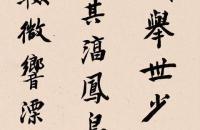 舉世少
其滈鳳
微響漂